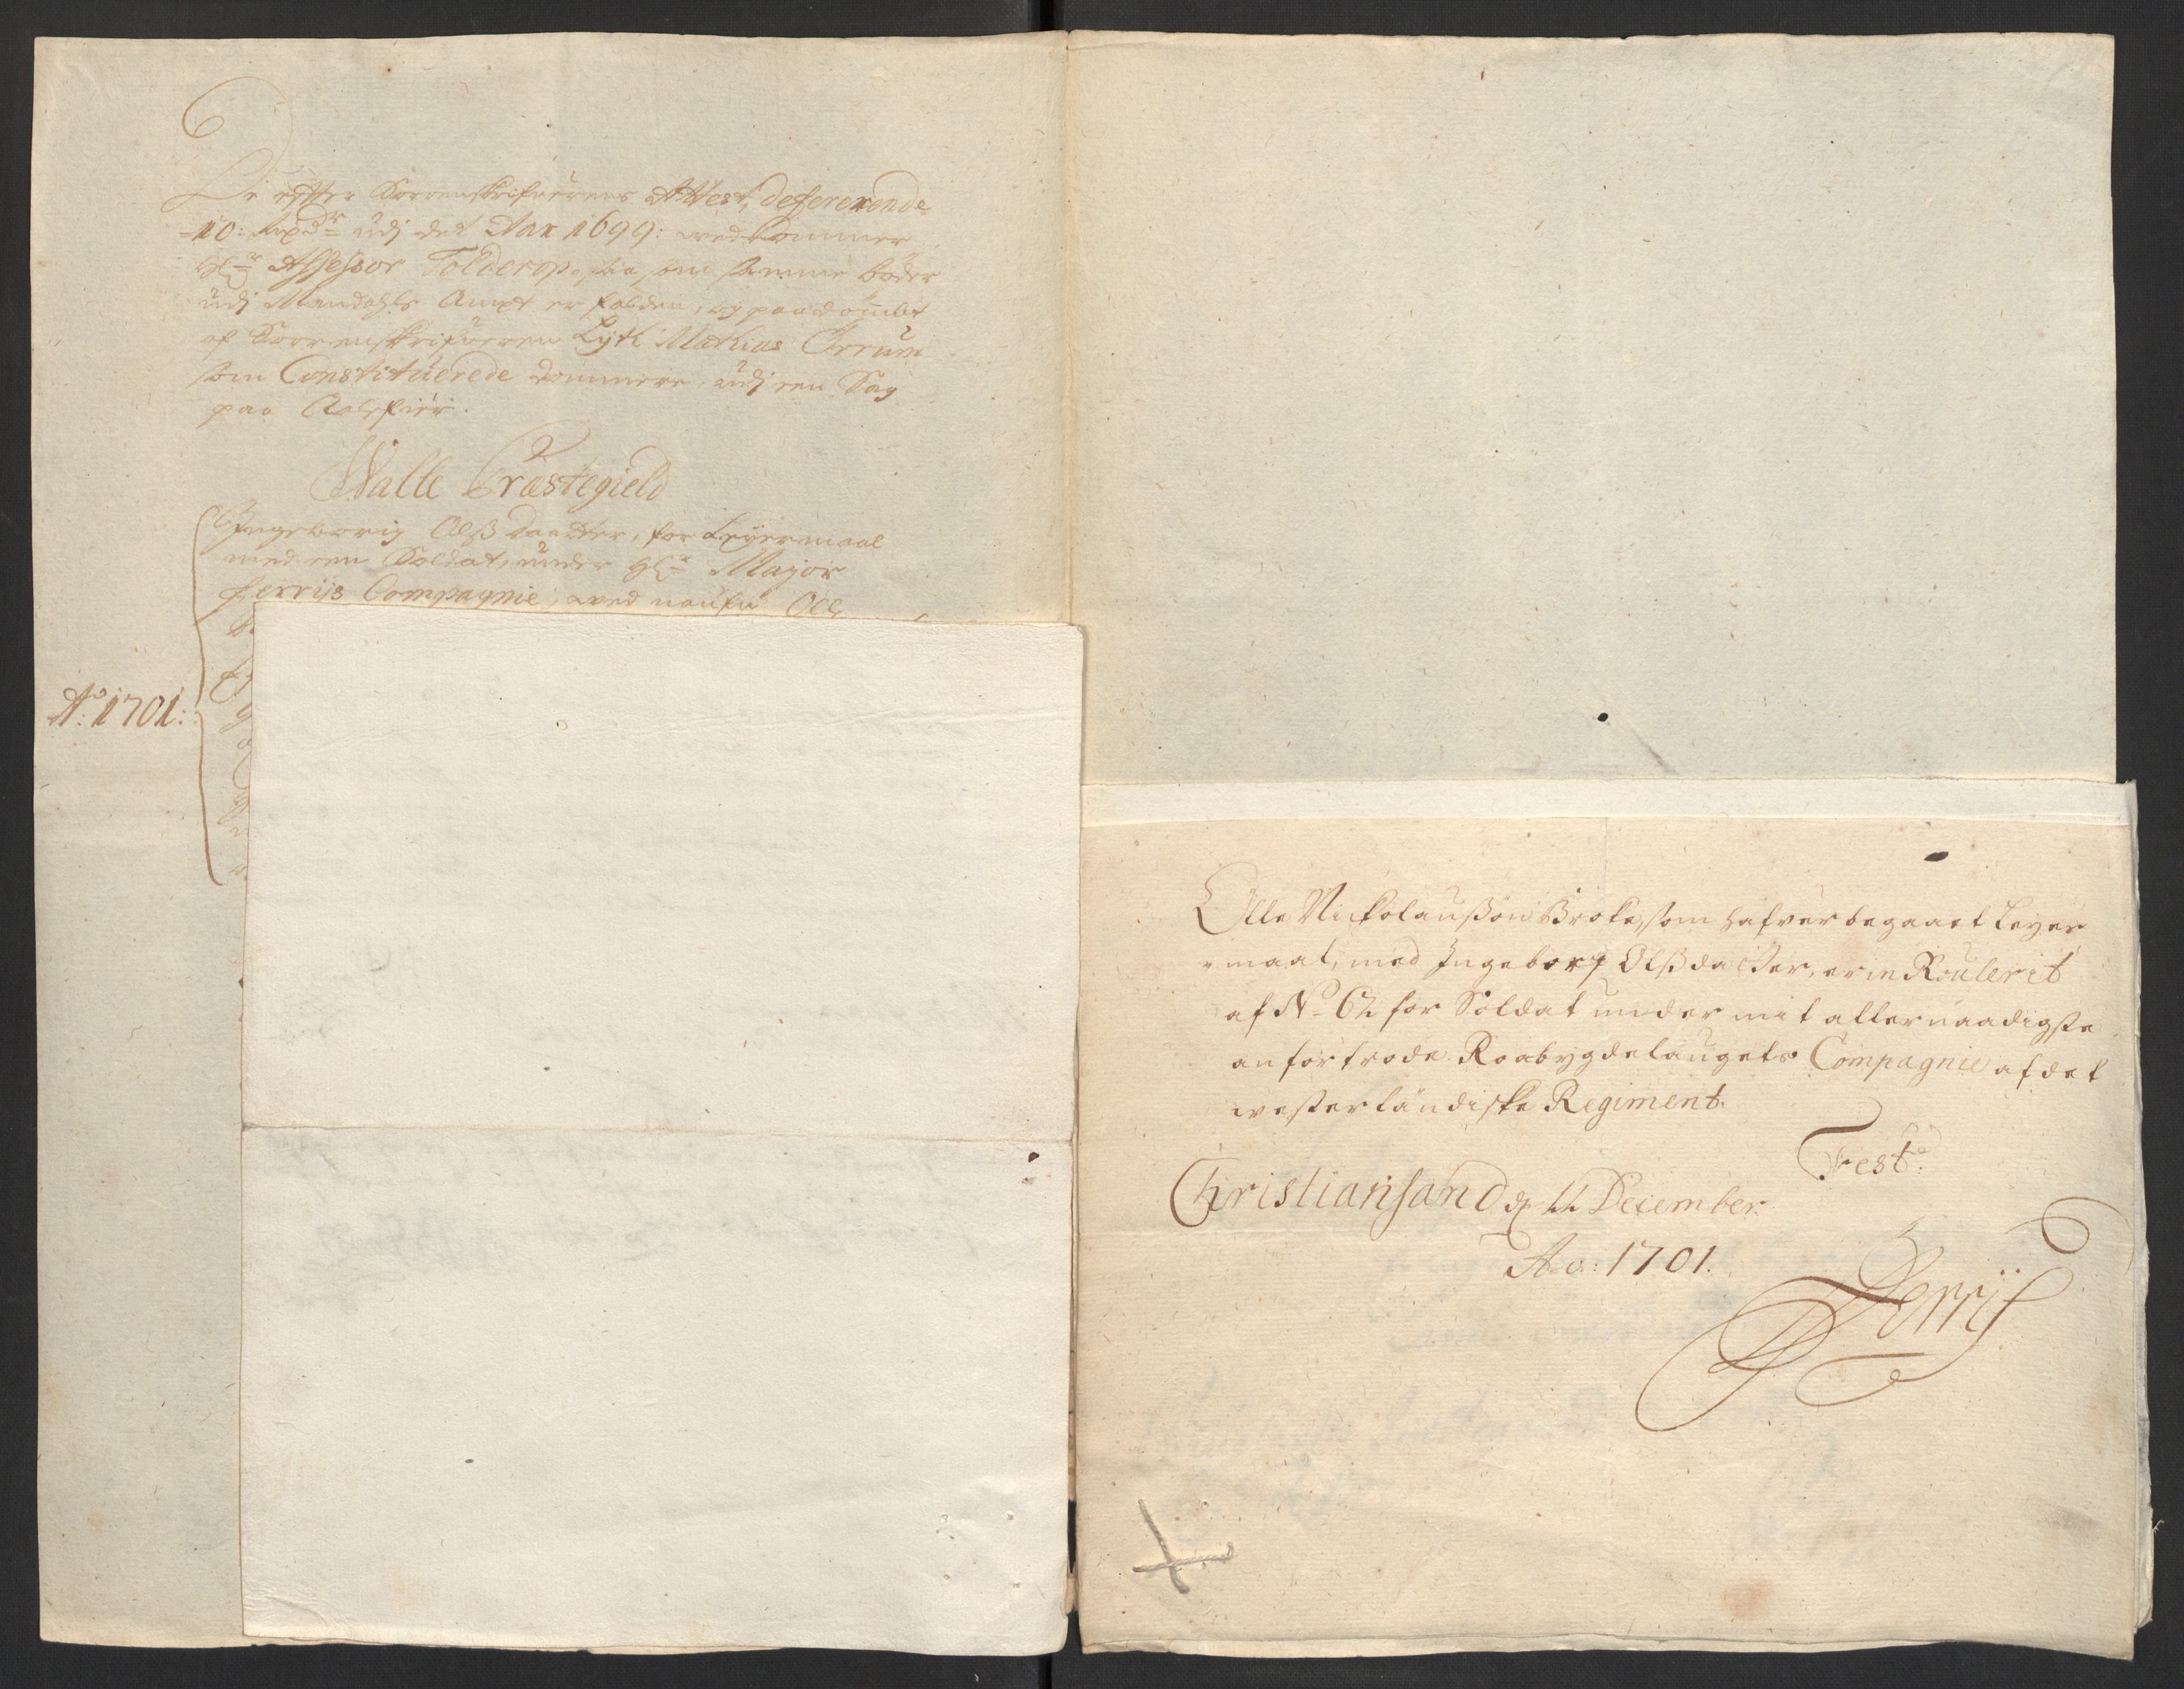 De efter Sorrenskrifverens Attest, deffererende
10: Rixdr udj det Aar 1699: vedkommer
Hr Assessor Tolderop, saa som samme bøder
udj Mandahls Ampt er falden, og paadømbt
af Sorrenskrifveren Sr Mathias
som Constituerede dommere, udj een Sag
paa
Walle Præstegield
Ingeborrig Olss daatter, for Leyermaal
med een Soldat, under Hr Major
Ferrijs Compagnie, ved naufn Oll
Ao: 1701:
Olle Nickolaussøn Broke, som hafver begaaet Leyer
maal, med Ingeborg Olssdatter, er in Roulerit
af No 62 for Soldat under mit allernaadigste
anfortrode Raabygdelaugets Compagnie af det
westerlandiske Regiment.
Test:
Christiansand d 11 December
Ao: 1701.
Ferrijs